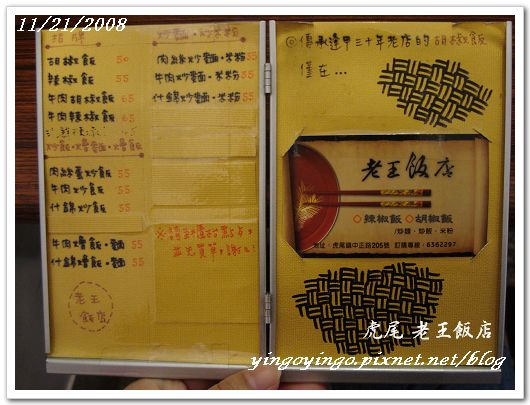 11/21/2008
招牌
胡椒飯 50
辣椒飯 55
牛肉胡椒飯 65
牛肉辣椒飯 65
炒飯·燴麵·燴飯
肉絲蛋炒飯 55
牛肉炒飯 55
什錦炒飯 55
牛肉燴飯·麵 55
什錦燴飯·麵 55
老王飯店
炒麵·炒米粉
肉絲炒麵·米粉 55
牛肉炒麵·米粉 55
什錦炒麵·米粉 55
並先買單,謝謝!
◎傳承逢甲三十年老店的胡椒飯
僅在...
老王飯店
◇辣椒飯 ◇胡椒飯
/炒麵·炒飯·米粉
地址:虎尾鎮中正路205號 訂購專線:6362297
虎尾 老王飯店
yingoyingo.pixnet.net/blog